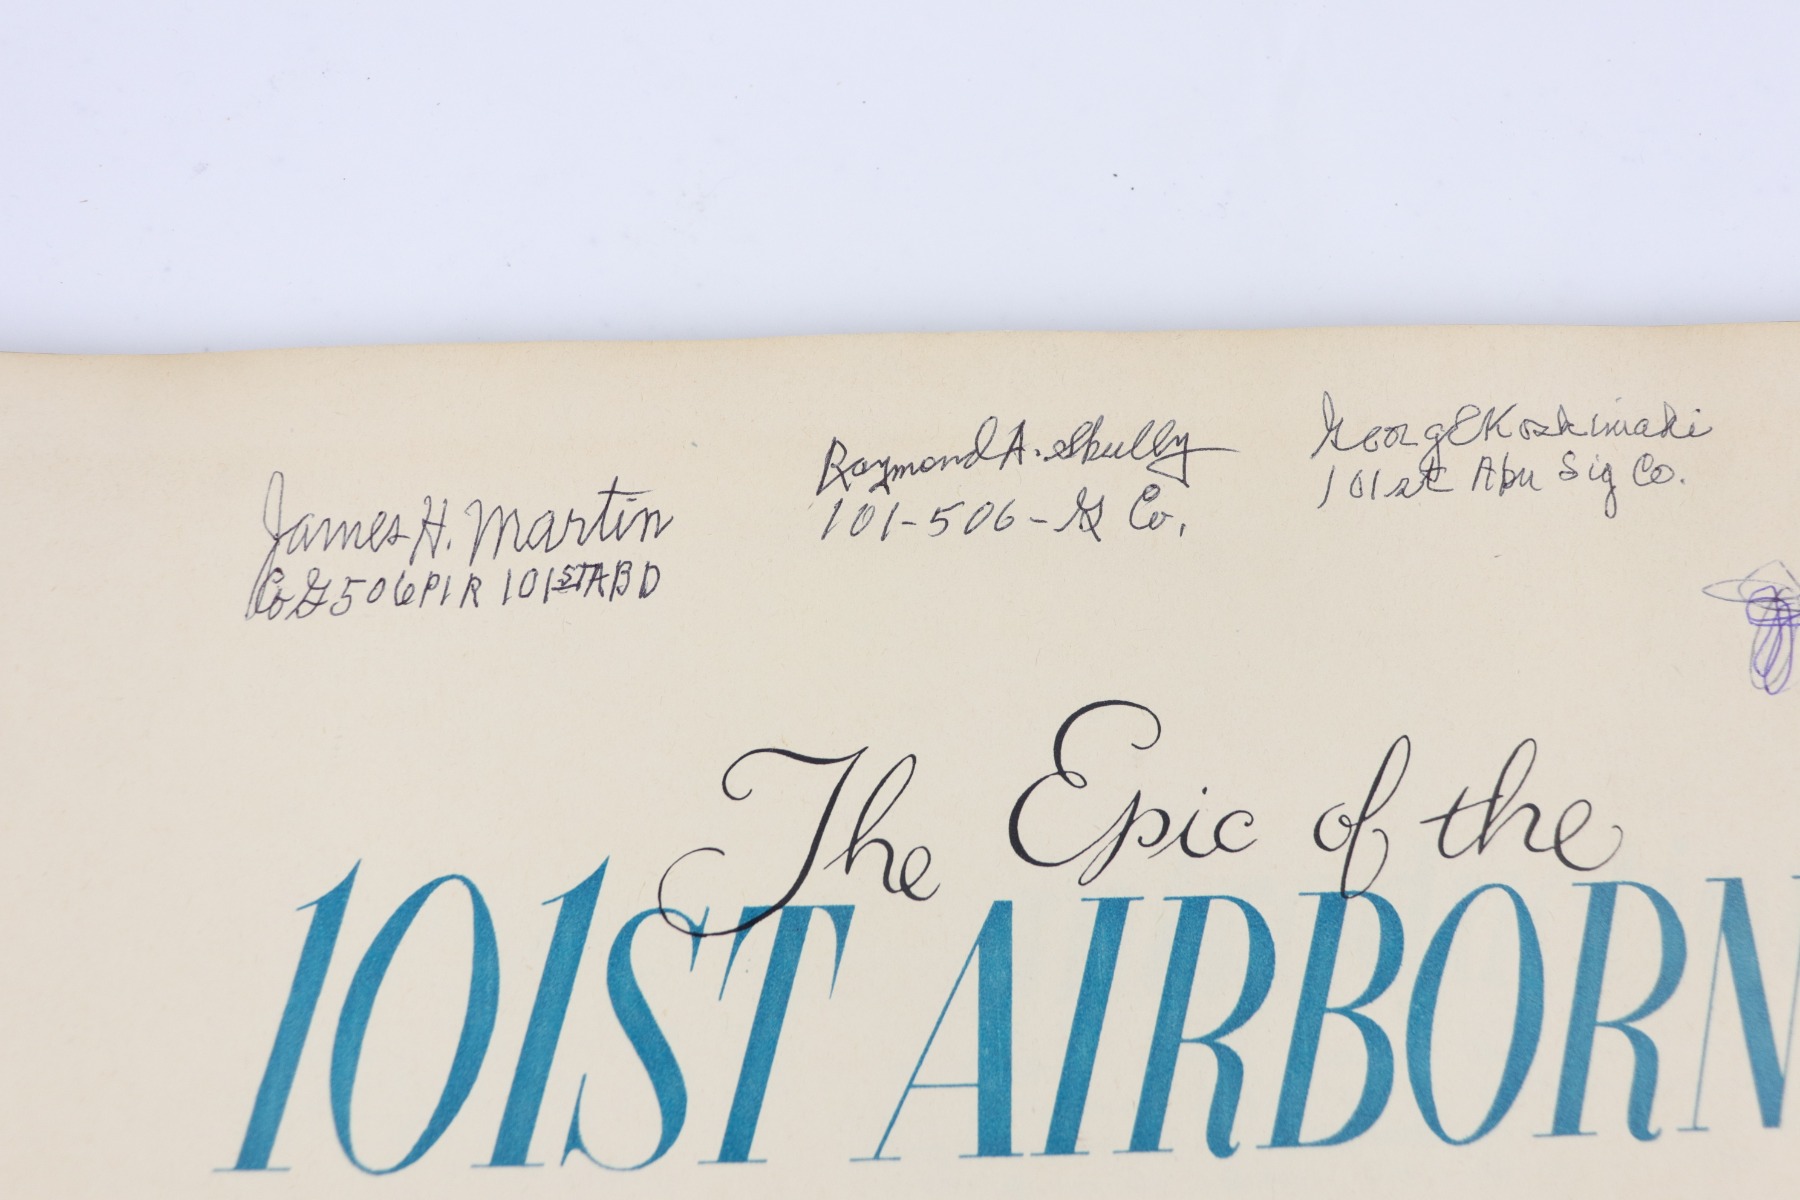 James H. Martin
Co G 506 PIR 101ST ABD
Raymond A. Skully
101-506-G Co.
George E Koskimaki
101st Abn Sig Co.
The Epic of the
101ST AIRBORN